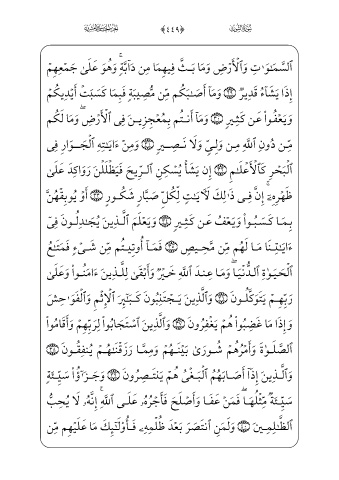 سُورَةُ الشُّورَىٰ ﴿٤٤٩﴾
ٱلسَّمَٰوَٰتِ وَٱلْأَرْضِ وَمَا بَثَّ فِيهِمَا مِن دَآبَّةٍۚ وَهُوَ عَلَىٰ جَمْعِهِمْ
إِذَا يَشَآءُ قَدِيرٌ ٢٩ وَمَآ أَصَٰبَكُم مِّن مُّصِيبَةٍ فَبِمَا كَسَبَتْ أَيْدِيكُمْ
وَيَعْفُوا۟ عَن كَثِيرٍ ٣٠ وَمَآ أَنتُم بِمُعْجِزِينَ فِى ٱلْأَرْضِۖ وَمَا لَكُم
مِّن دُونِ ٱللَّهِ مِن وَلِىٍّ وَلَا نَصِيرٍ ٣١ وَمِنْ ءَايَٰتِهِ ٱلْجَوَارِ فِى
ٱلْبَحْرِ كَٱلْأَعْلَٰمِ ٣٢ إِن يَشَأْ يُسْكِنِ ٱلرِّيحَ فَيَظْلَلْنَ رَوَاكِدَ عَلَىٰ
ظَهْرِهِۦٓۚ إِنَّ فِى ذَٰلِكَ لَءَايَٰتٍ لِّكُلِّ صَبَّارٍ شَكُورٍ ٣٣ أَوْ يُوبِقْهُنَّ
بِمَا كَسَبُوا۟ وَيَعْفُ عَن كَثِيرٍ ٣٤ وَيَعْلَمَ ٱلَّذِينَ يُجَٰدِلُونَ فِىٓ
ءَايَٰتِنَا مَا لَهُم مِّن مَّحِيصٍ ٣٥ فَمَآ أُوتِيتُم مِّن شَىْءٍ فَمَتَٰعُ
ٱلْحَيَوٰةِ ٱلدُّنْيَاۖ وَمَا عِندَ ٱللَّهِ خَيْرٌ وَأَبْقَىٰ لِلَّذِينَ ءَامَنُوا۟ وَعَلَىٰ
رَبِّهِمْ يَتَوَكَّلُونَ ٣٦ وَٱلَّذِينَ يَجْتَنِبُونَ كَبَٰٓئِرَ ٱلْإِثْمِ وَٱلْفَوَٰحِشَ
وَإِذَا مَا غَضِبُوا۟ هُمْ يَغْفِرُونَ ٣٧ وَٱلَّذِينَ ٱسْتَجَابُوا۟ لِرَبِّهِمْ وَأَقَامُوا۟
ٱلصَّلَوٰةَ وَأَمْرُهُمْ شُورَىٰ بَيْنَهُمْ وَمِمَّا رَزَقْنَٰهُمْ يُنفِقُونَ ٣٨
وَٱلَّذِينَ إِذَآ أَصَابَهُمُ ٱلْبَغْىُ هُمْ يَنتَصِرُونَ ٣٩ وَجَزَٰٓؤُا۟ سَيِّئَةٍ
سَيِّئَةٌ مِّثْلُهَاۖ فَمَنْ عَفَا وَأَصْلَحَ فَأَجْرُهُۥ عَلَى ٱللَّهِۚ إِنَّهُۥ لَا يُحِبُّ
ٱلظَّٰلِمِينَ ٤٠ وَلَمَنِ ٱنتَصَرَ بَعْدَ ظُلْمِهِۦ فَأُو۟لَٰٓئِكَ مَا عَلَيْهِم مِّن